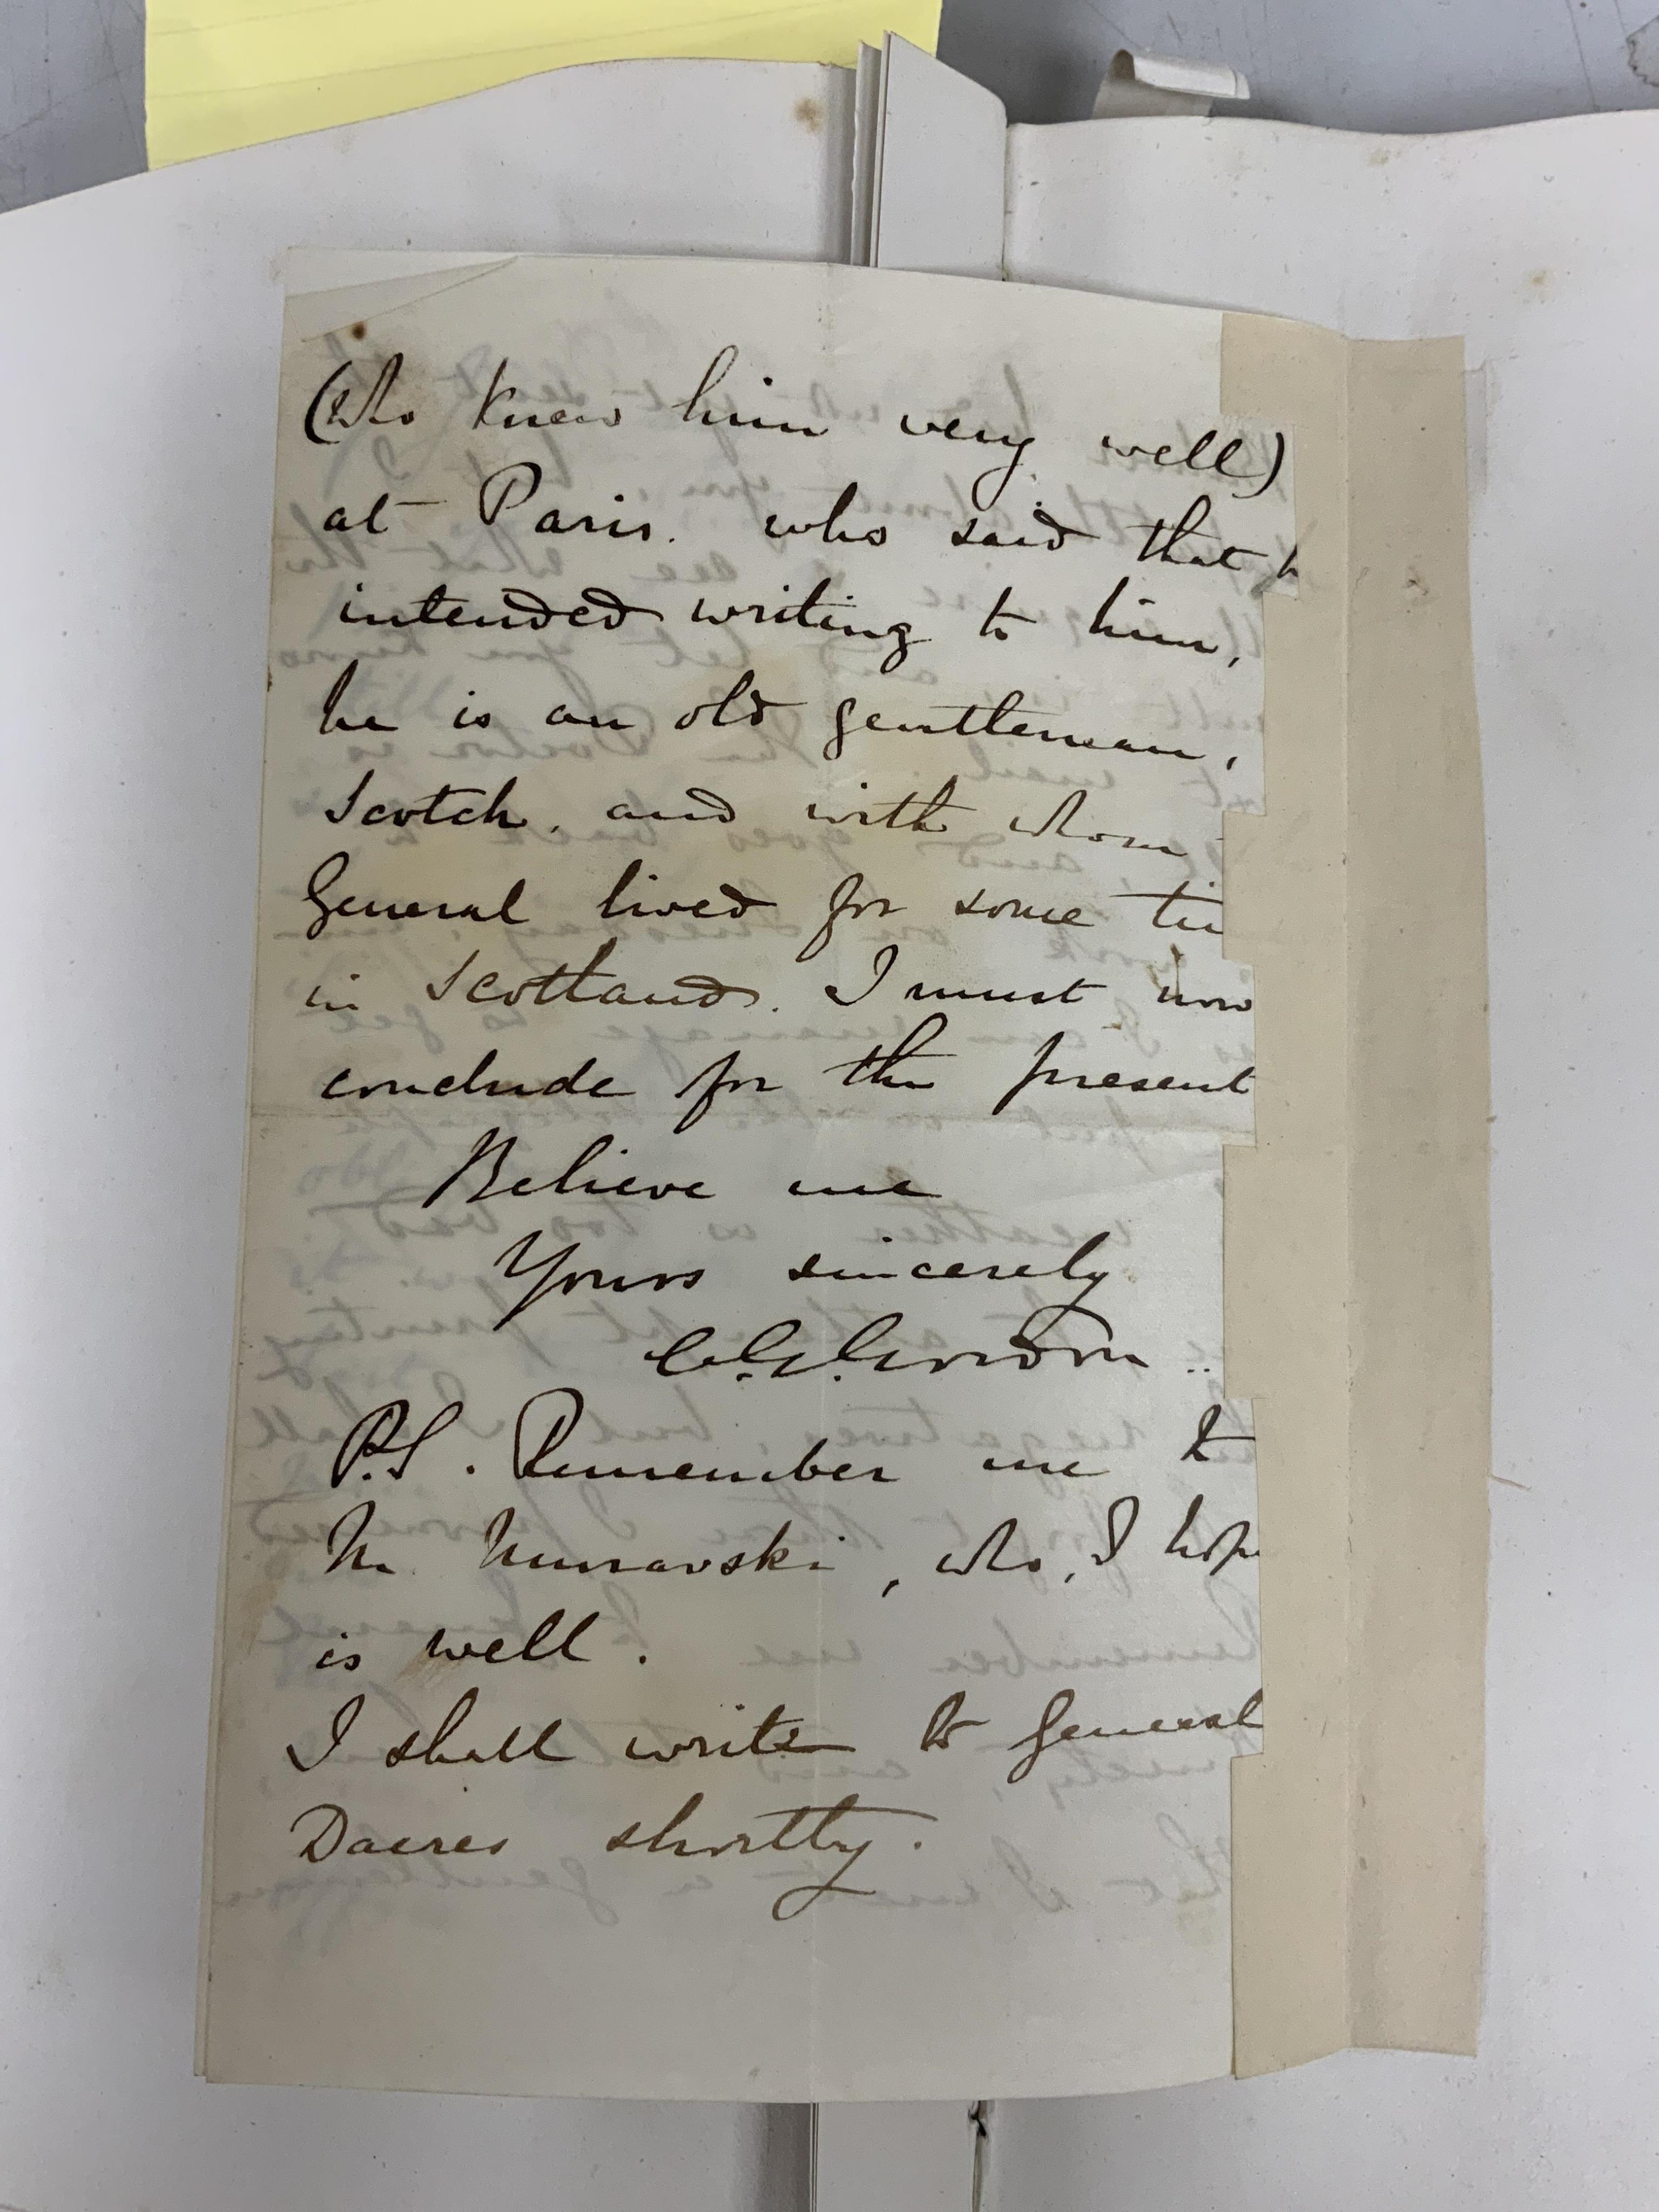 (who knew him very well)
at Paris. who said that h
intended writing to him,
he is an old gentleman,
Scotch. and with whom
General lived for some ti
in Scotland. I must now
conclude for the present
Believe me
Yours sincerely
C.G. Gordon ..
P.S. Remember me to
M. Muravski, who, I hope
is well.
I shall write to General
Dacres shortly.